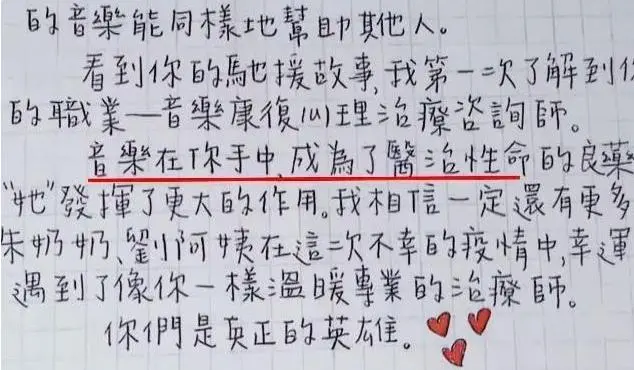 的音樂能同樣地幫助其他人。
看到你的馳援故事,我第一次了解到你
的職業—音樂康復心理治療咨詢師。
音樂在你手中,成為了醫治性命的良藥
"她"發揮了更大的作用。我相信一定還有更多
朱奶奶、劉阿姨在這次不幸的疫情中,幸運
遇到了像你一樣溫暖專業的治療師。
你們是真正的英雄。